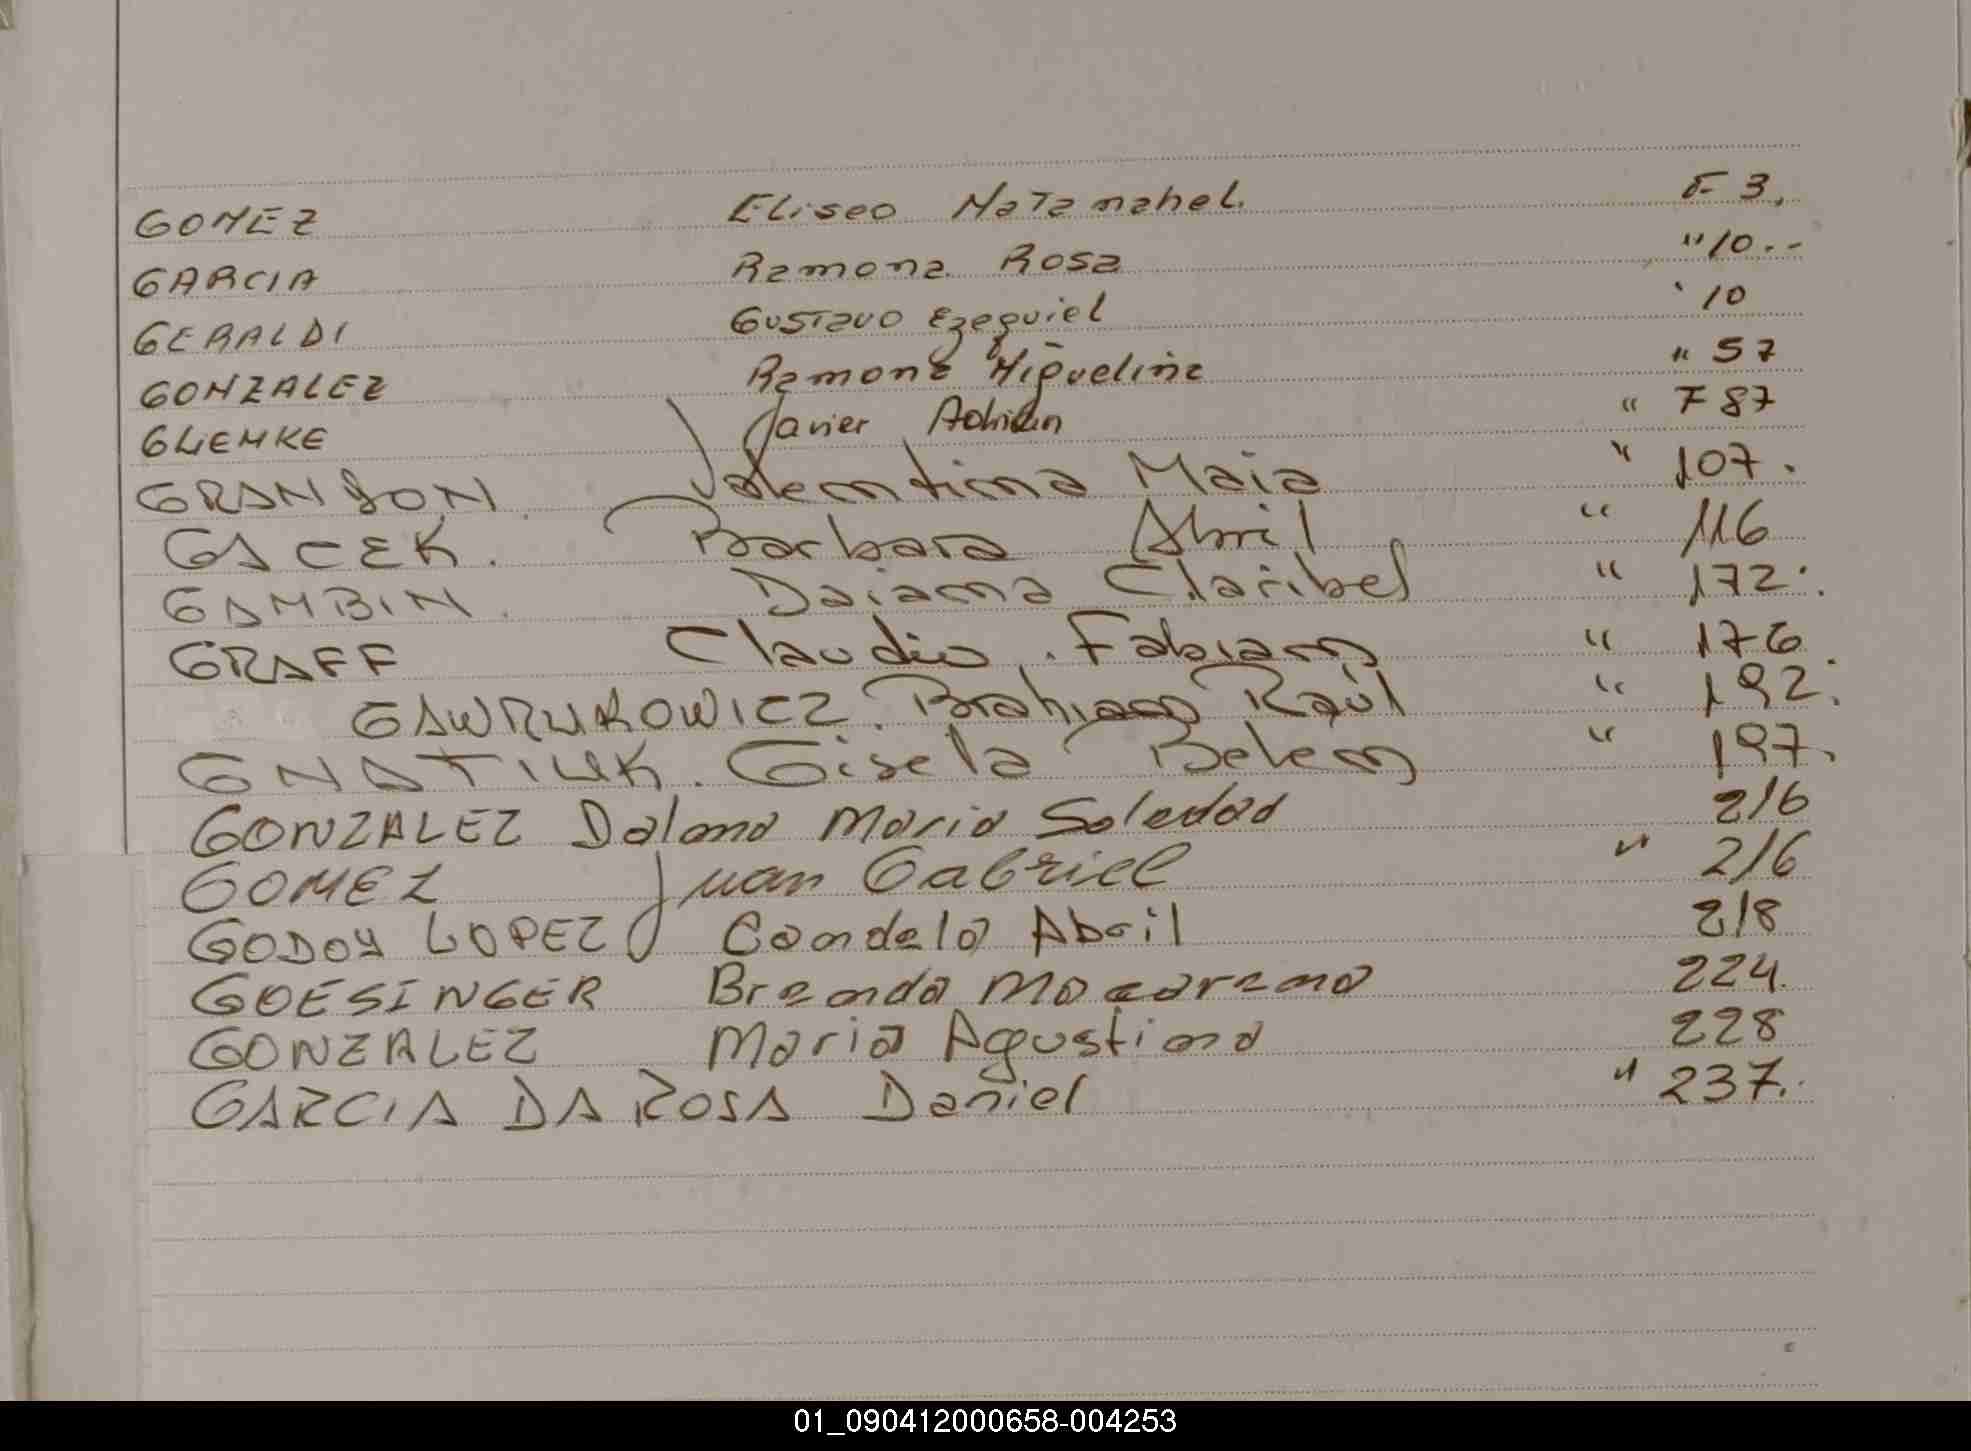 GOMEZ Eliseo Natanahel. F 3.
GARCIA Ramona Rosa " 10 --
GERALDI Gustavo Ezequiel " 10
GONZALEZ Ramona Miguelina " 57
GLIEMKE Javier Adrian " F 87
GRANSON Valentina Maia " 107.
GACEK. Barbara Abril " 116
GAMBIN. Daiana Claribel " 172.
GRAFF Claudio Fabian " 176
GAWRYKOWICZ. Brahian Raúl " 192.
GNATIUK. Gisela Belen " 197.
GONZALEZ Dalana Maria Soledad 216
GOMEZ Juan Gabriel " 216
GODOY LOPEZ Candela Abril 218
GOESINGER Brenda Macarena 224.
GONZALEZ Maria Agustina 228
GARCIA DA ROSA Daniel " 237.
01_090412000658-004253